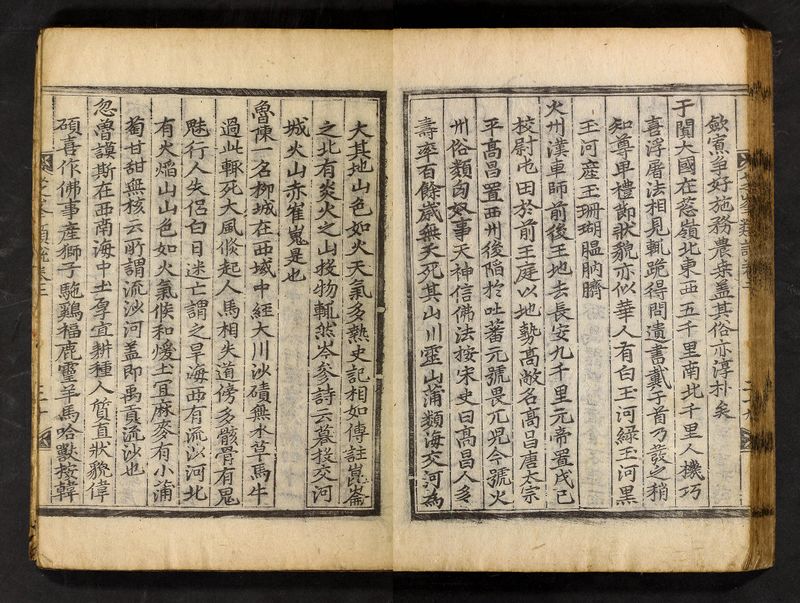 芝峯類說卷二
歛寡爭好施務農桒盖其俗亦淳朴矣
于闐大國在葱嶺北東西五千里南北千里人機巧
喜浮屠法相見輒跪得問遺書戴于首乃發之稍
知尊卑禮節狀貌亦似華人有白玉河緑玉河黒
玉河産玉珊瑚膃肭臍
火州漢車師前後王地去長安九千里元帝置戊己
校尉屯田於前王庭以地勢高敞名高昌唐太宗
平高昌置西州後陷於吐蕃元號畏兀兒今號火
州俗類匈奴事天神信佛法按宋史曰高昌人多
壽率百餘歲無夭死其山川靈山蒲類海交河為
大其地山色如火天氣多熱史記相如傳註崑崙
之北有炎火之山投物輒然岑參詩云暮投交河
城火山赤崔嵬是也
魯陳一名柳城在西域中經大川沙磧無水草馬牛
過此輒死大風倐起人馬相失道傍多骸骨有鬼
魅行人失侶白日迷亡謂之旱海西有流沙河北
有火焔山山色如火氣候和煖土冝麻麥有小蒲
萄甘甜無核云所謂流沙河盖即禹貢流沙也
忽魯謨斯在西南海中土厚宜耕種人質直狀貌偉
碩喜作佛事産獅子駝鷄福鹿靈羊馬哈獸按韓
三十